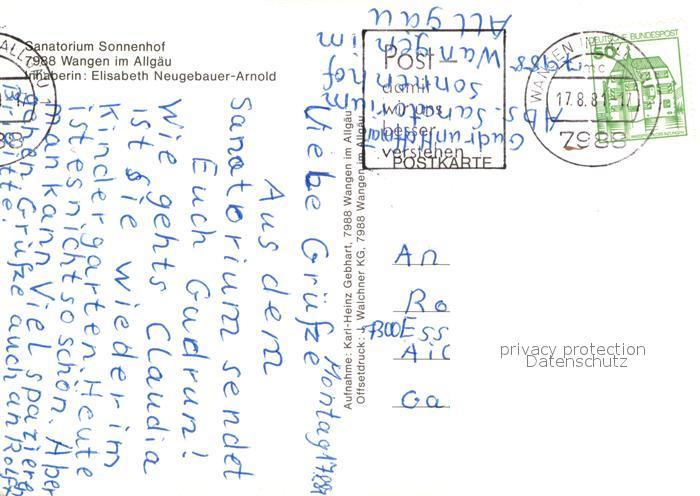 Sanatorium Sonnenhof
7988 Wangen im Allgäu
Inhaberin: Elisabeth Neugebauer-Arnold
Montag 17.8.81
Liebe Grüße
Aus dem
Sanatorium sendet
Euch Gudrun!
Wie gehts Claudia
ist sie wieder im
Kindergarten. Heute
ist es nicht so schön. Aber
man kann viel spazieren
gehen. Grüße auch an Rolf
bitte.
Abs. Gudrun
Sanatorium
Sonnenhof
Wangen im
Allgäu
Aufnahme: Karl-Heinz Gebhart, 7988 Wangen im Allgäu
Offsetdruck: J. Walchner KG, 7988 Wangen im Allgäu
Post-
damit
wir uns
besser
verstehen
POSTKARTE
WANGEN
17.8.81-17
7988
DEUTSCHE BUNDESPOST
50
An
Ro
7300 Ess
Aic
Ga
privacy protection
Datenschutz